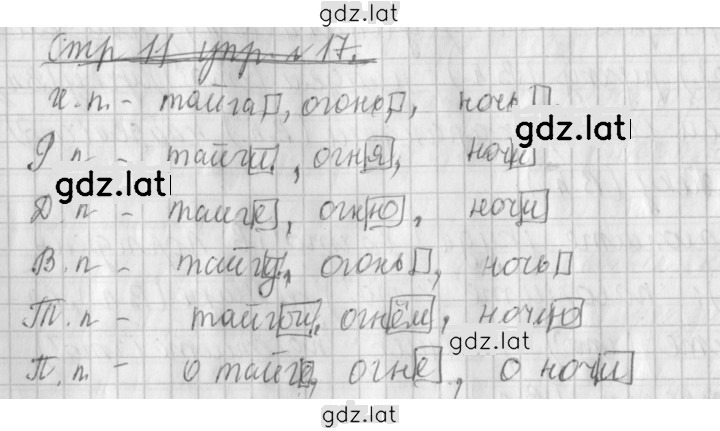 gdz.lat
Стр 11 упр № 17.
И.п. - тайга, огонь, ночь
gdz.lat
Р.п - тайги, огня, ночи
gdz.lat
Д.п - тайге, огню, ночи
В.п - тайгу, огонь, ночь
Т.п - тайгой, огнём, ночью
gdz.lat
П.п. - о тайге, огне, о ночи
gdz.lat